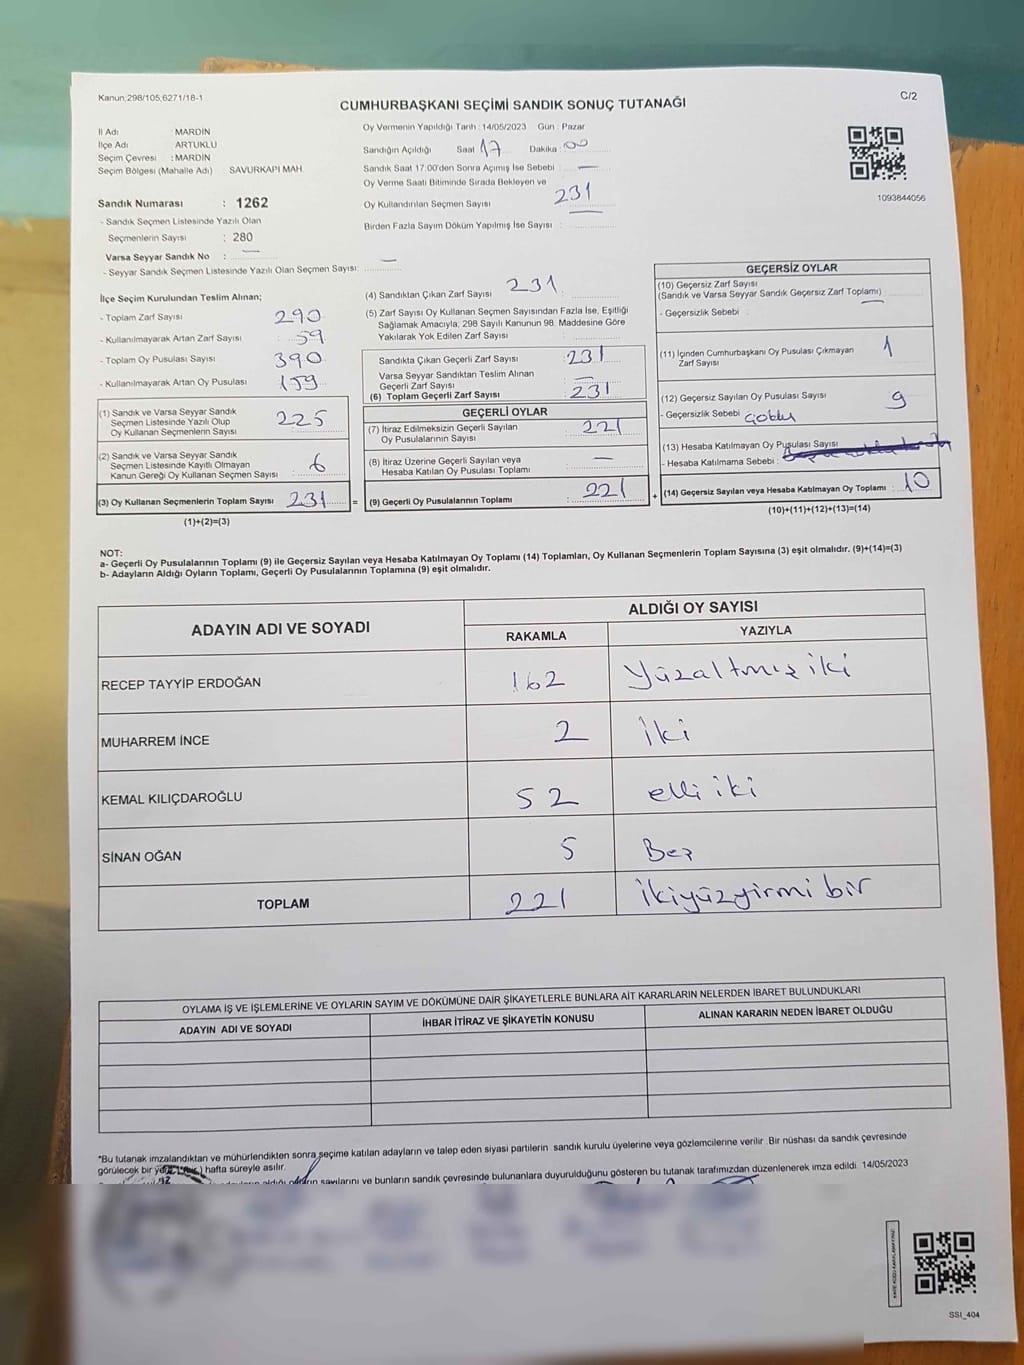 Kanun,298/105,6271/18-1
CUMHURBAŞKANI SEÇİMİ SANDIK SONUÇ TUTANAĞI
C/2
İl Adı : MARDİN
İlçe Adı : ARTUKLU
Seçim Çevresi : MARDİN
Seçim Bölgesi (Mahalle Adı) : SAVURKAPI MAH.
Oy Vermenin Yapıldığı Tarih : 14/05/2023 Gün : Pazar
Sandığın Açıldığı Saat 17 Dakika : 00
Sandık Saat 17:00'den Sonra Açımış İse Sebebi : —
Oy Verme Saati Bitiminde Sırada Bekleyen ve
Oy Kullandırılan Seçmen Sayısı : 231
—
Birden Fazla Sayım Döküm Yapılmış İse Sayısı :
1093844056
Sandık Numarası : 1262
- Sandık Seçmen Listesinde Yazılı Olan
Seçmenlerin Sayısı : 280
Varsa Seyyar Sandık No : —
- Seyyar Sandık Seçmen Listesinde Yazılı Olan Seçmen Sayısı: —
İlçe Seçim Kurulundan Teslim Alınan;
- Toplam Zarf Sayısı : 290
- Kullanılmayarak Artan Zarf Sayısı : 59
- Toplam Oy Pusulası Sayısı : 390
- Kullanılmayarak Artan Oy Pusulası : 159
(1) Sandık ve Varsa Seyyar Sandık
Seçmen Listesinde Yazılı Olup
Oy Kullanan Seçmenlerin Sayısı : 225
(2) Sandık ve Varsa Seyyar Sandık
Seçmen Listesinde Kayıtlı Olmayan
Kanun Gereği Oy Kullanan Seçmen Sayısı : 6
(3) Oy Kullanan Seçmenlerin Toplam Sayısı : 231 =
(1)+(2)=(3)
(4) Sandıktan Çıkan Zarf Sayısı : 231
(5) Zarf Sayısı Oy Kullanan Seçmen Sayısından Fazla İse, Eşitliği
Sağlamak Amacıyla, 298 Sayılı Kanunun 98. Maddesine Göre
Yakılarak Yok Edilen Zarf Sayısı :
Sandıkta Çıkan Geçerli Zarf Sayısı : 231
Varsa Seyyar Sandıktan Teslim Alınan
Geçerli Zarf Sayısı : —
(6) Toplam Geçerli Zarf Sayısı : 231
GEÇERLİ OYLAR
(7) İtiraz Edilmeksizin Geçerli Sayılan
Oy Pusulalarının Sayısı : 221
(8) İtiraz Üzerine Geçerli Sayılan veya
Hesaba Katılan Oy Pusulası Toplamı : —
(9) Geçerli Oy Pusulalarının Toplamı : 221 +
GEÇERSİZ OYLAR
(10) Geçersiz Zarf Sayısı
(Sandık ve Varsa Seyyar Sandık Geçersiz Zarf Toplamı) : —
- Geçersizlik Sebebi :
(11) İçinden Cumhurbaşkanı Oy Pusulası Çıkmayan
Zarf Sayısı : 1
(12) Geçersiz Sayılan Oy Pusulası Sayısı : 9
- Geçersizlik Sebebi :
(13) Hesaba Katılmayan Oy Pusulası Sayısı
- Hesaba Katılmama Sebebi :
(14) Geçersiz Sayılan veya Hesaba Katılmayan Oy Toplamı : 10
(10)+(11)+(12)+(13)=(14)
NOT:
a- Geçerli Oy Pusulalarının Toplamı (9) ile Geçersiz Sayılan veya Hesaba Katılmayan Oy Toplamı (14) Toplamları, Oy Kullanan Seçmenlerin Toplam Sayısına (3) eşit olmalıdır. (9)+(14)=(3)
b- Adayların Aldığı Oyların Toplamı, Geçerli Oy Pusulalarının Toplamına (9) eşit olmalıdır.
ADAYIN ADI VE SOYADI
ALDIĞI OY SAYISI
RAKAMLA YAZIYLA
RECEP TAYYİP ERDOĞAN 162 Yüzaltmış iki
MUHARREM İNCE 2 İki
KEMAL KILIÇDAROĞLU 52 elli iki
SİNAN OĞAN 5 Beş
TOPLAM 221 ikiyüzyirmi bir
OYLAMA İŞ VE İŞLEMLERİNE VE OYLARIN SAYIM VE DÖKÜMÜNE DAİR ŞİKAYETLERLE BUNLARA AİT KARARLARIN NELERDEN İBARET BULUNDUKLARI
ADAYIN ADI VE SOYADI İHBAR İTİRAZ VE ŞİKAYETİN KONUSU ALINAN KARARIN NEDEN İBARET OLDUĞU
*Bu tutanak imzalandıktan ve mühürlendikten sonra seçime katılan adayların ve talep eden siyasi partilerin sandık kurulu üyelerine veya gözlemcilerine verilir. Bir nüshası da sandık çevresinde
görülecek bir yere hafta süreyle asılır.
sayılarını ve bunların sandık çevresinde bulunanlara duyurulduğunu gösteren bu tutanak tarafımızdan düzenlenerek imza edildi. 14/05/2023
SSI_404